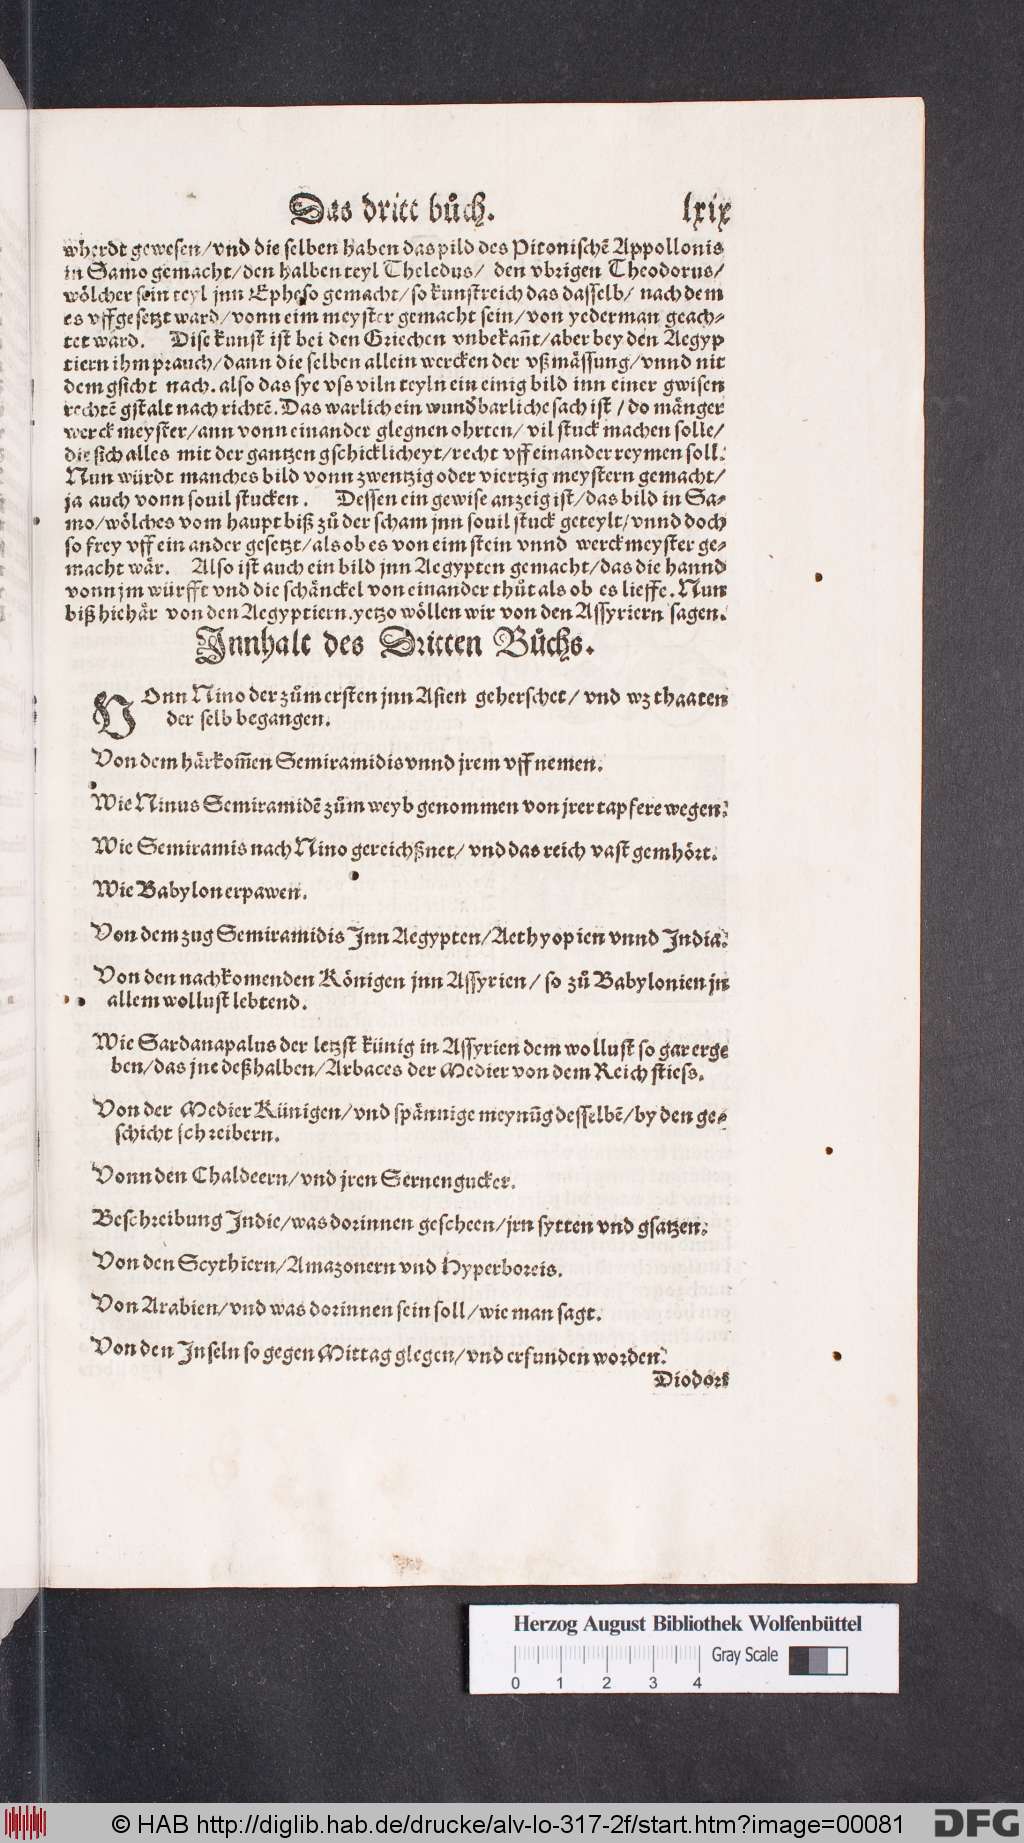 Das dritt bůch. lxix
wherdt gewesen/vnd die selben haben das pild des Pitonischẽ Appollonis
in Samo gemacht/den halben teyl Theledus/ den vbrigen Theodorus/
wölcher sein teyl jnn Epheso gemacht/so kunstreich das dasselb/ nach dem
es vffgesetzt ward/vonn eim meyster gemacht sein/von yederman geach-
tet ward. Dise kunst ist bei den Griechen vnbekañt/aber bey den Aegyp
tiern ihm prauch/dann die selben allein wercken der vßmässung/vnnd nit
dem gsicht nach. also das sye vss viln teyln ein einig bild inn einer gwisen
rechtẽ gstalt nach richtẽ. Das warlich ein wunďbarliche sach ist/do mänger
werck meyster/ann vonn einander glegnen ohrten/vil stuck machen solle/
die sich alles mit der gantzen gschicklicheyt/recht vff einander reymen soll.
Nun würdt manches bild vonn zwentzig oder viertzig meystern gemacht/
ja auch vonn souil stucken. Dessen ein gewise anzeig ist/das bild in Sa-
mo/wölches vom haupt biß zů der scham jnn souil stuck geteylt/vnnd doch
so frey vff ein ander gesetzt/als ob es von eim stein vnnd werckmeyster ge-
macht wär. Also ist auch ein bild jnn Aegypten gemacht/das die hannd
vonn jm würfft vnd die schänckel von einander thůt als ob es lieffe. Nun
biß hiehär von den Aegyptiern. yetzo wöllen wir von den Assyriern sagen.
Innhalt des Dritten Bůchs.
VOnn Nino der zům ersten jnn Asien geherschet/ vnd wz thaaten
der selb begangen.
Von dem härkom̃en Semiramidis vnnd jrem vff nemen.
Wie Ninus Semiramidẽ zům weyb genommen von jrer tapfere wegen.
Wie Semiramis nach Nino gereichßnet/ vnd das reich vast gemhört.
Wie Babylon erpawen.
Von dem zug Semiramidis Inn Aegypten/Aethyopien vnnd India.
Von den nachkomenden Königen jnn Assyrien/ so zů Babylonien jn
allem wollust lebtend.
Wie Sardanapalus der letzst künig in Assyrien dem wollust so gar erge
ben/das jne deßhalben/Arbaces der Medier von dem Reich stiess.
Von der Medier Künigen/vnd spännige meynũg desselbẽ/by den ge-
schicht schreibern.
Vonn den Chaldeern/vnd jren Sernengucker.
Beschreibung Indie/was dorinnen gescheen/jrn sytten vnd gsatzen.
Von den Scythiern/Amazonern vnd Hyperboreis.
Von Arabien/vnd was dorinnen sein soll/wie man sagt.
Von den Inseln so gegen Mittag glegen/vnd erfunden worden.
Diodors
Herzog August Bibliothek Wolfenbüttel
Gray Scale
0 1 2 3 4
© HAB http://diglib.hab.de/drucke/alv-lo-317-2f/start.htm?image=00081 DFG